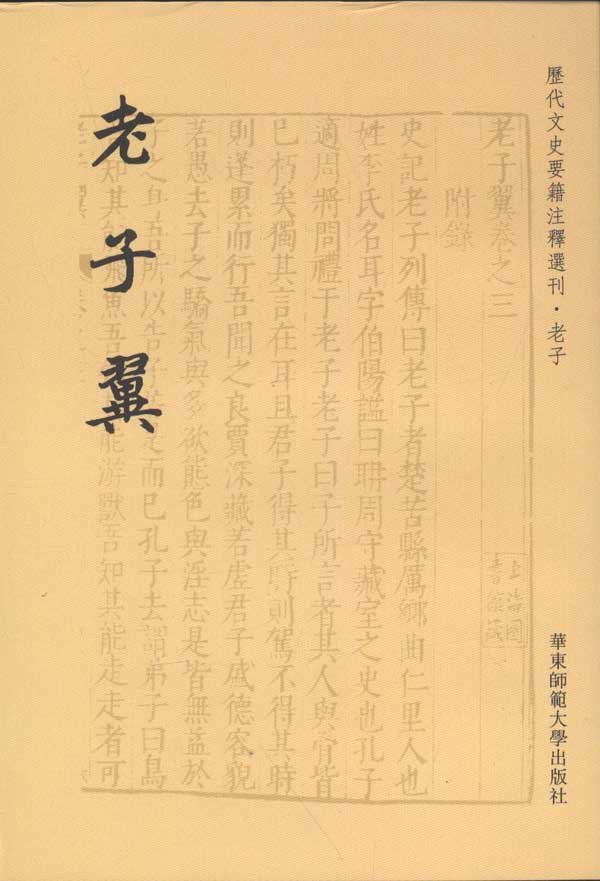 歷代文史要籍注釋選刊·老子
華東師範大學出版社
老子翼
老子翼卷之三
附錄
上海圖
書館藏
史記老子列傳曰老子者楚苦縣厲鄉曲仁里人也
姓李氏名耳字伯陽謚曰聃周守藏室之史也孔子
適周將問禮于老子老子曰子所言者其人與骨皆
已朽矣獨其言在耳且君子得其時則駕不得其時
則蓬累而行吾聞之良賈深藏若虛君子盛德容貌
若愚去子之驕氣與多欲態色與淫志是皆無益於
之身吾所以告子是而已孔子去謂弟子曰鳥
知其飛魚吾能游獸吾知其能走走者可